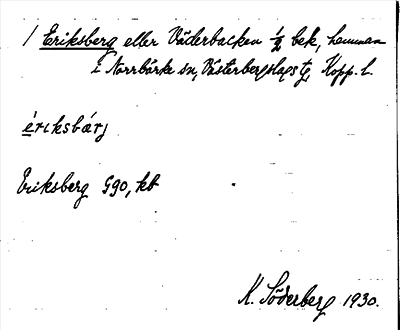 / Eriksberg eller Väderbacken ½ bek, hemman
i Norrbärke sn, Västerbergslags tg, Kopp. l.
èriksbárj
Eriksberg G90, kb
K. Söderberg 1930.